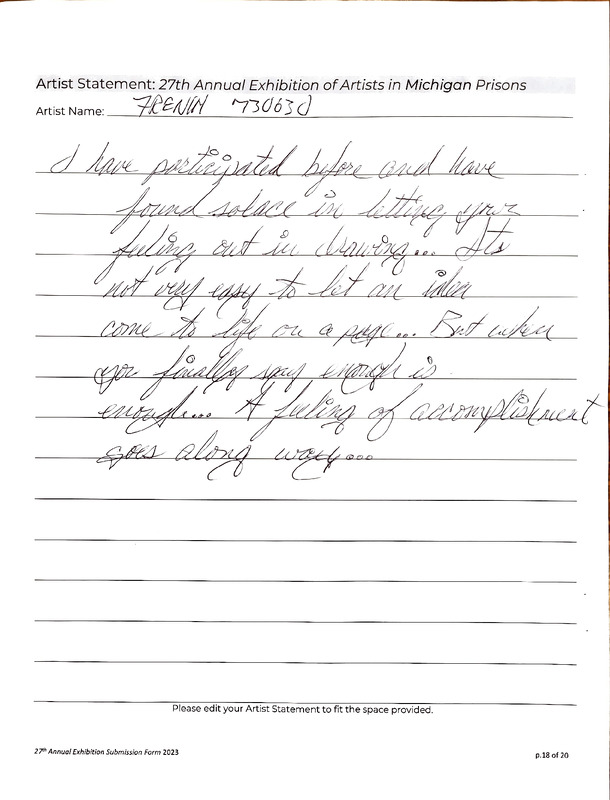 Artist Statement: 27th Annual Exhibition of Artists in Michigan Prisons
Artist Name: 730630
I have participated before and have
found solace in letting your
feeling out in drawing... Its
not very easy to let an idea
come to life on a page... But when
you finally say enough is
enough... A feeling of accomplishment
goes along way...
Please edit your Artist Statement to fit the space provided.
27th Annual Exhibition Submission Form 2023
p.18 of 20